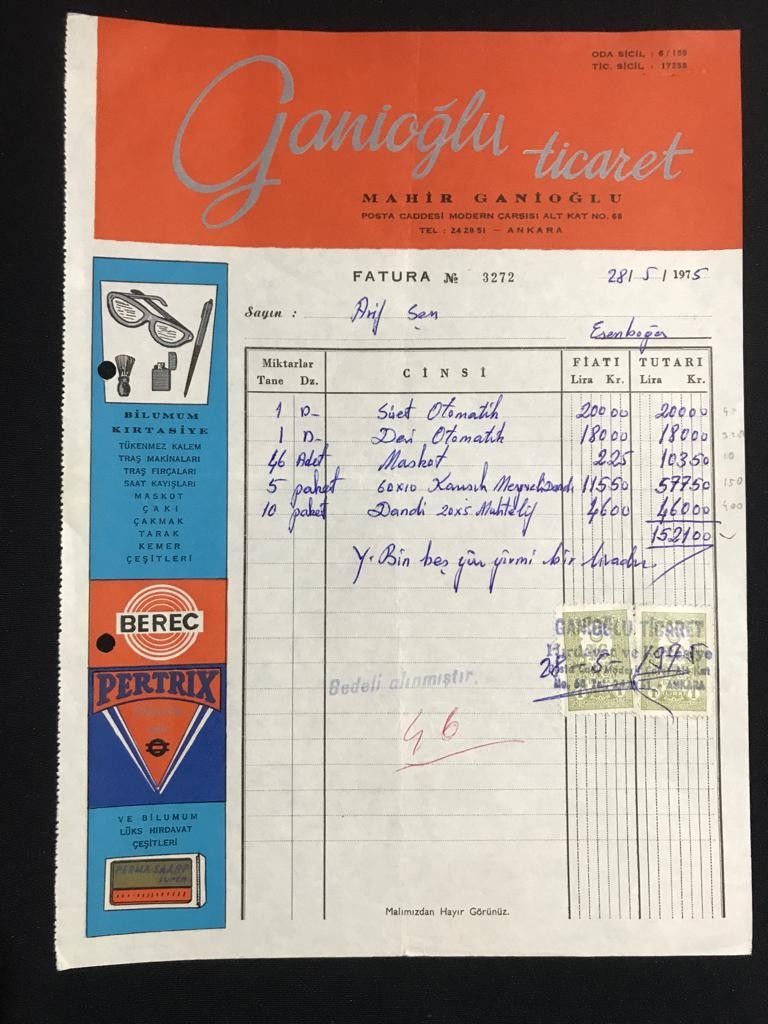 ODA SİCİL : 6/159
TİC. SİCİL . 17258
Ganioğlu ticaret
MAHİR GANİOĞLU
POSTA CADDESİ MODERN ÇARŞISI ALT KAT NO. 68
TEL : 24 28 51 — ANKARA
FATURA № 3272
28/5/1975
Sayın : Arif Şen
Esenboğa
Miktarlar
Tane Dz.
CİNSİ
FİATI
Lira Kr.
TUTARI
Lira Kr.
1 D- Süet Otomatik 20000 20000
1 D- Deri Otomatik 18000 18000
46 Adet Maskot 225 10350
5 paket 60x10 Karışık Meyveli Dandi 11550 57750
10 paket Dandi 20x5 Muhtelif 4600 46000
152100
Y. Bin beş yüz yirmi bir liradır.
BİLUMUM
KIRTASİYE
TÜKENMEZ KALEM
TRAŞ MAKİNALARI
TRAŞ FIRÇALARI
SAAT KAYIŞLARI
MASKOT
ÇAKI
ÇAKMAK
TARAK
KEMER
ÇEŞİTLERİ
BEREC
PERTRIX
VE BİLUMUM
LÜKS HIRDAVAT
ÇEŞİTLERİ
PERMA-SHARP
SUPER
GANİOĞLU TİCARET
Hırdavat ve Kırtasiye
28 5 1975
ANKARA
Bedeli alınmıştır.
46
Malımızdan Hayır Görünüz.